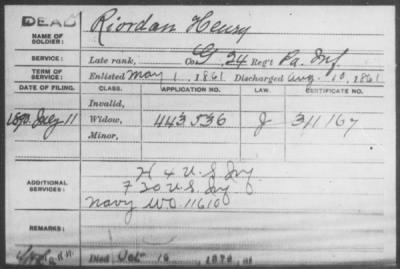 DEAD
NAME OF SOLDIER: Riordan Henry
SERVICE: Late rank, Co. G, 24 Reg't Pa. Inf.
TERM OF SERVICE: Enlisted May 1, 1861 Discharged Aug. 10, 1861
DATE OF FILING. CLASS. APPLICATION NO. LAW. CERTIFICATE NO.
Invalid,
1890 July 11 Widow, 443536 J 311167
Minor,
ADDITIONAL SERVICES: H 4 U.S. Inf
F 20 U.S. Inf
Navy WO 11610
REMARKS:
Died Oct 16